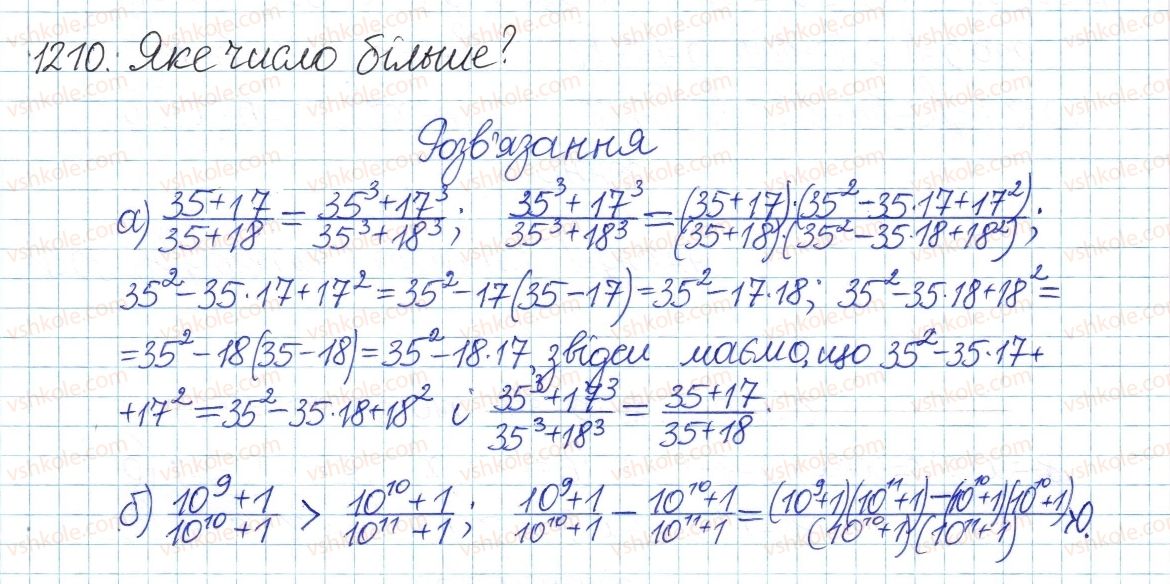 1210. Яке число більше?
Розв'язання
а) (35+17)/(35+18) = (35³+17³)/(35³+18³); (35³+17³)/(35³+18³) = ((35+17)·(35²-35·17+17²))/((35+18)(35²-35·18+18²));
35²-35·17+17²=35²-17(35-17)=35²-17·18; 35²-35·18+18²=
=35²-18(35-18)=35²-18·17, звідси маємо, що 35²-35·17+
+17²=35²-35·18+18² і (35³+17³)/(35³+18³) = (35+17)/(35+18).
б) (10⁹+1)/(10¹⁰+1) > (10¹⁰+1)/(10¹¹+1); (10⁹+1)/(10¹⁰+1) - (10¹⁰+1)/(10¹¹+1) = ((10⁹+1)(10¹¹+1)-(10¹⁰+1)(10¹⁰+1))/((10¹⁰+1)(10¹¹+1)) >0.